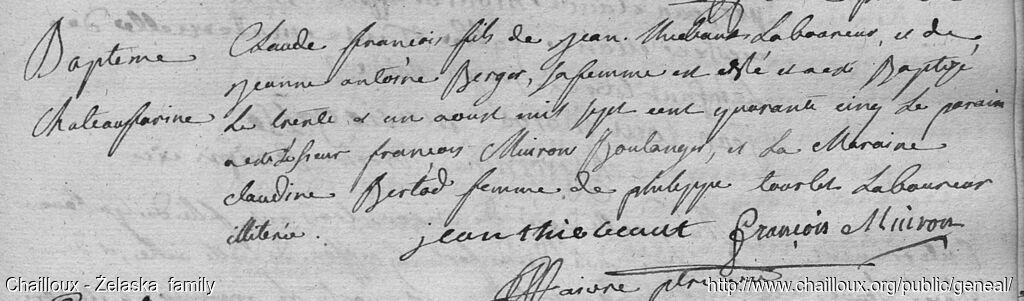 Baptême
Chateaufarine
Claude françois fils de jean thiebaud Laboureur, et de
jeanne antoine Berger, sa femme est né et a esté Baptizé
Le trente et un aoust mil sept cent quarante cinq Le parain
a esté Le sieur françois Muiron Boulanger, et La Maraine
claudine Bertod femme de philippe tourlet Laboureur
illiterée.
jean thiebaut françois Muiron
faivre ptre
Chailloux - Żelaska family
http://www.chailloux.org/public/geneal/